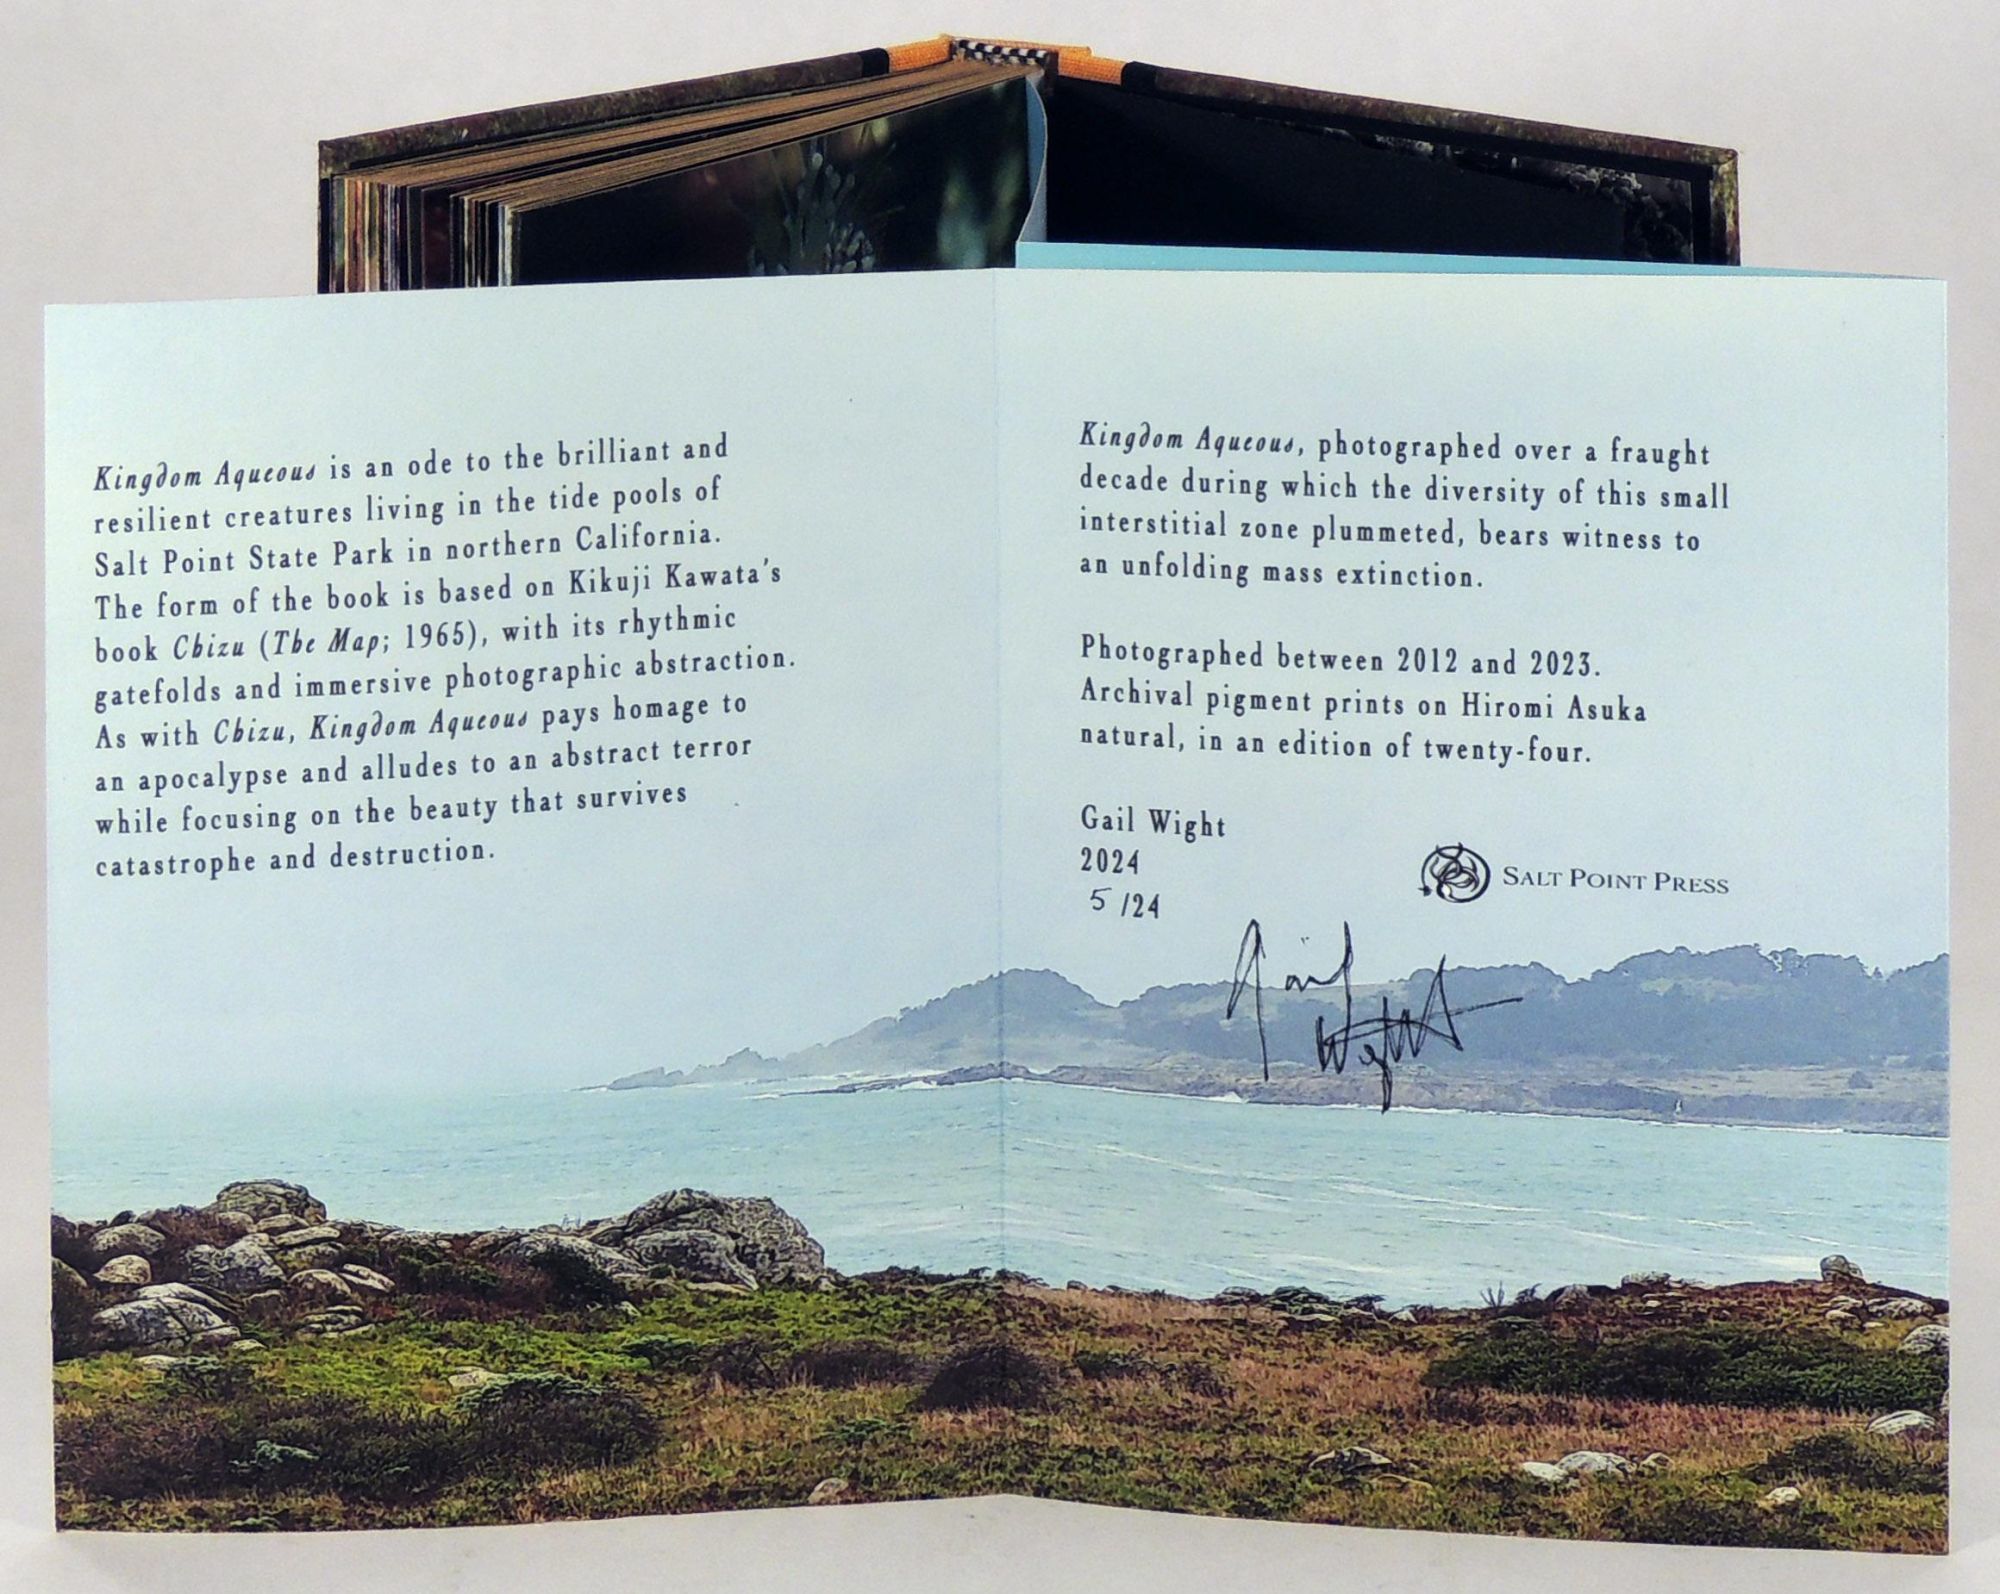 Kingdom Aqueous is an ode to the brilliant and
resilient creatures living in the tide pools of
Salt Point State Park in northern California.
The form of the book is based on Kikuji Kawata's
book Chizu (The Map; 1965), with its rhythmic
gatefolds and immersive photographic abstraction.
As with Chizu, Kingdom Aqueous pays homage to
an apocalypse and alludes to an abstract terror
while focusing on the beauty that survives
catastrophe and destruction.
Kingdom Aqueous, photographed over a fraught
decade during which the diversity of this small
interstitial zone plummeted, bears witness to
an unfolding mass extinction.
Photographed between 2012 and 2023.
Archival pigment prints on Hiromi Asuka
natural, in an edition of twenty-four.
Gail Wight
2024
5/24
SALT POINT PRESS
Gail
Wight